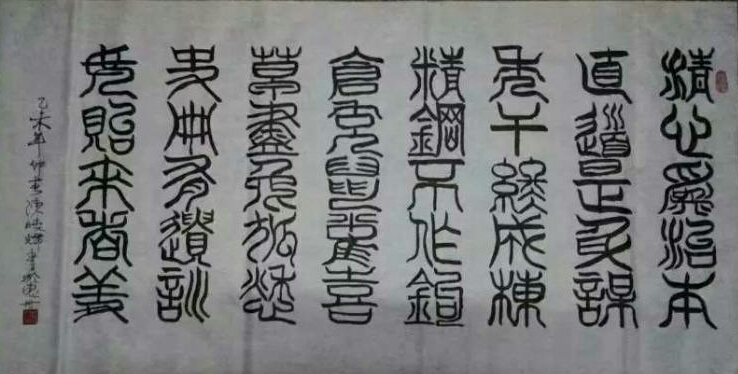 清心為治本
直道是身謀
秀干終成棟
精鋼不作鉤
倉充鼠雀喜
草盡兔狐愁
史冊有遺訓
毋貽來者羞
乙未年仲春陳